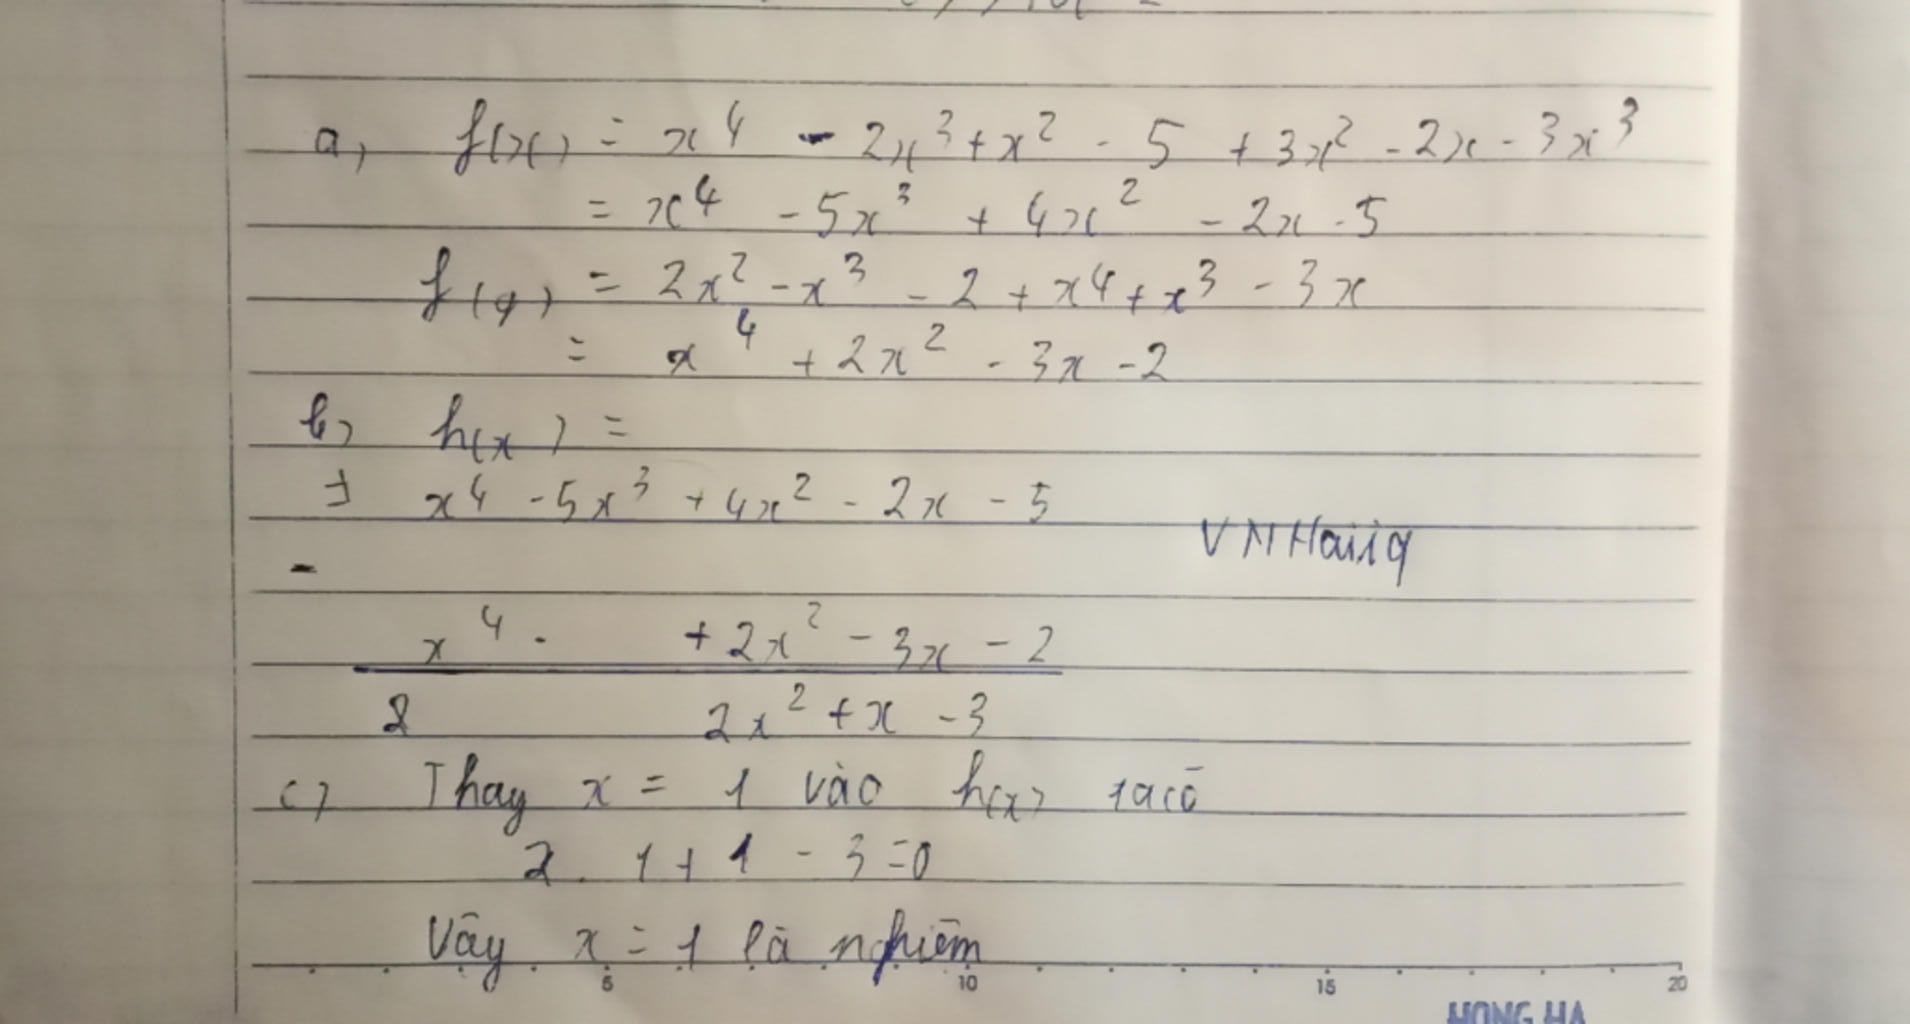 a, f(x) = x⁴ - 2x³ + x² - 5 + 3x² - 2x - 3x³
= x⁴ - 5x³ + 4x² - 2x - 5
f(g) = 2x² - x³ - 2 + x⁴ + x³ - 3x
= x⁴ + 2x² - 3x - 2
b, h(x) =
x⁴ - 5x³ + 4x² - 2x - 5
VNHaiiq
-
x⁴ + 2x² - 3x - 2
2 2x² + x - 3
c) Thay x = 1 vào h(x) ta có
2 . 1 + 1 - 3 = 0
Vậy x = 1 là nghiệm
5 10 15 20
HONG HA